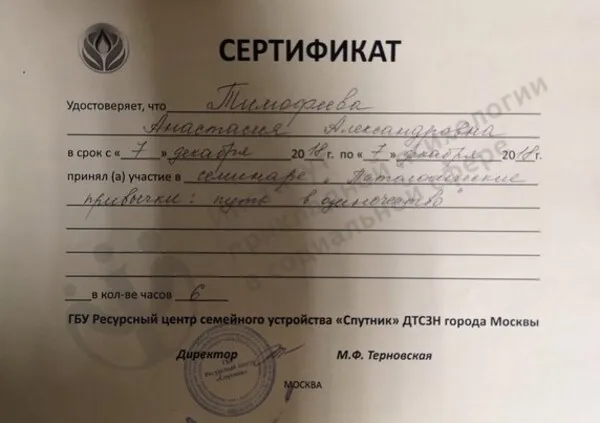 СЕРТИФИКАТ
Удостоверяет, что Тимофеева
Анастасия Александровна
в срок с « 7 » декабря 2018г. по « 7 » декабря 2018г.
принял (а) участие в семинаре „Патологические
привычки: путь в одиночество
в кол-ве часов 6
ГБУ Ресурсный центр семейного устройства «Спутник» ДТСЗН города Москвы
Директор М.Ф. Терновская
МОСКВА
психологии
в социальной сфере